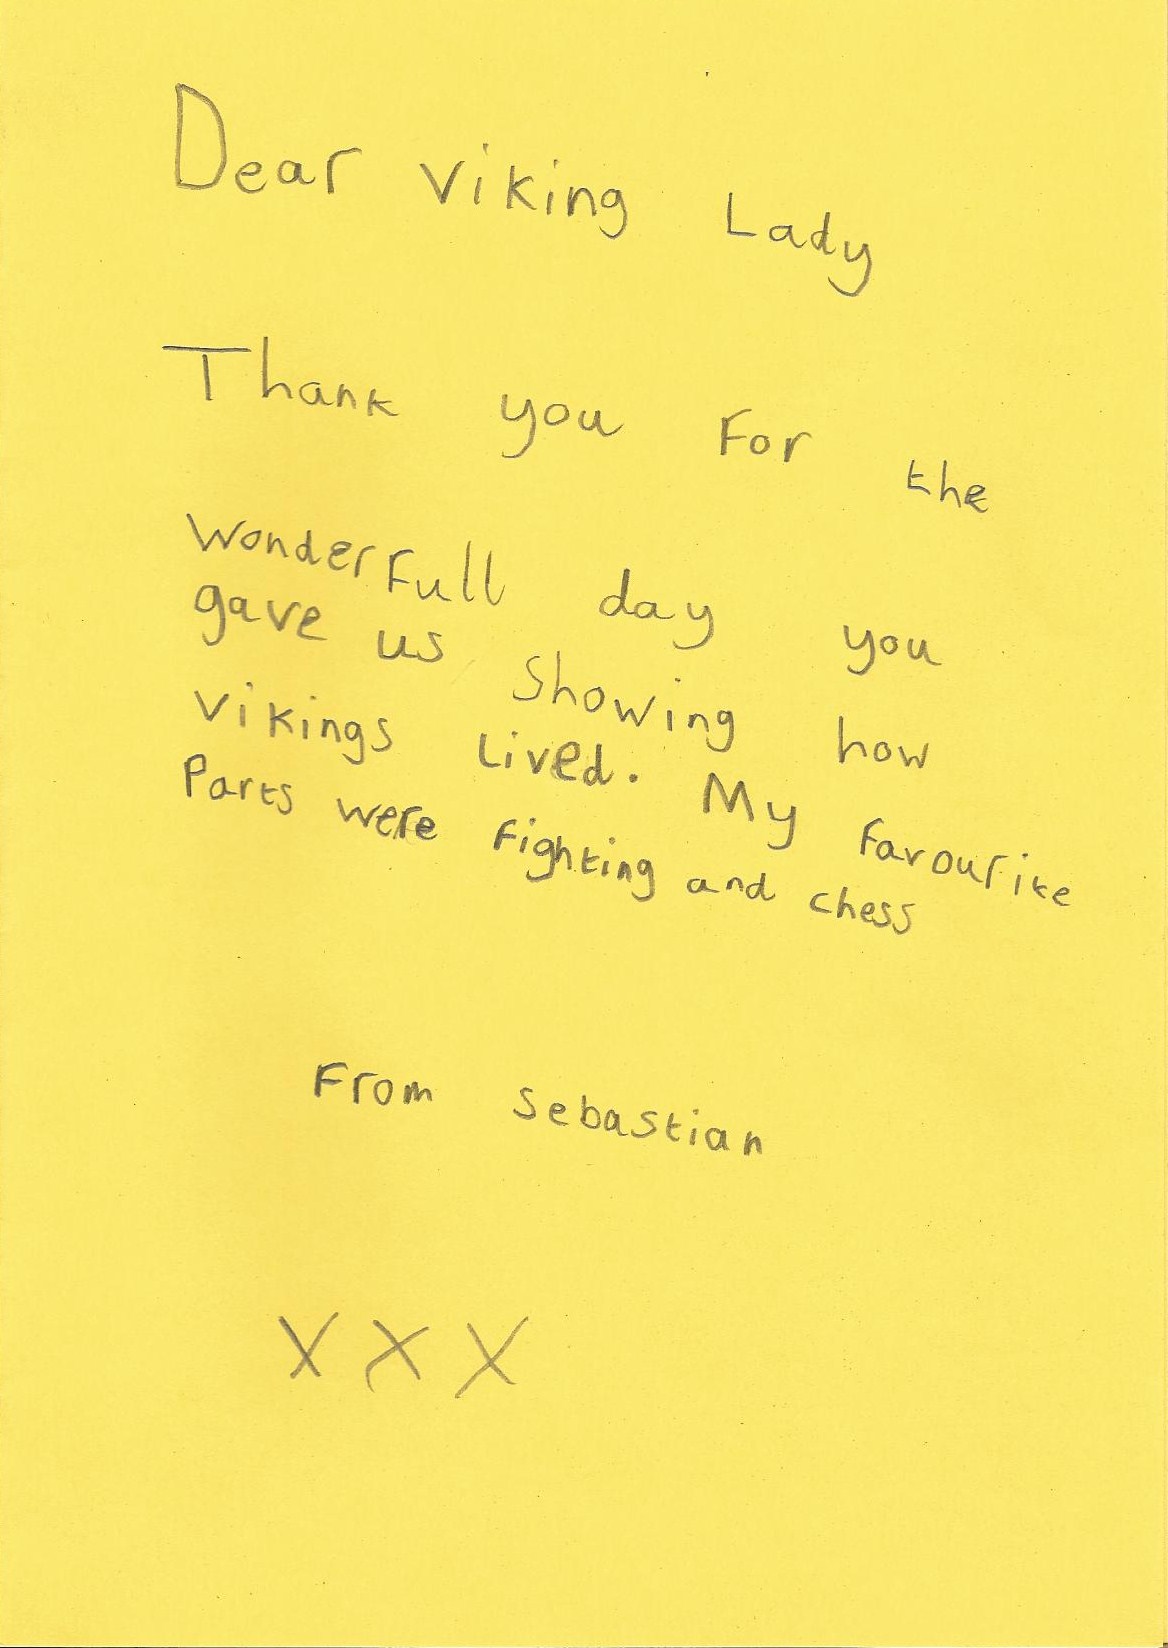 Dear Viking Lady
Thank you For the
WonderFull day you
gave us Showing how
Vikings Lived. My Favourite
Parts were Fighting and chess
From Sebastian
X X X